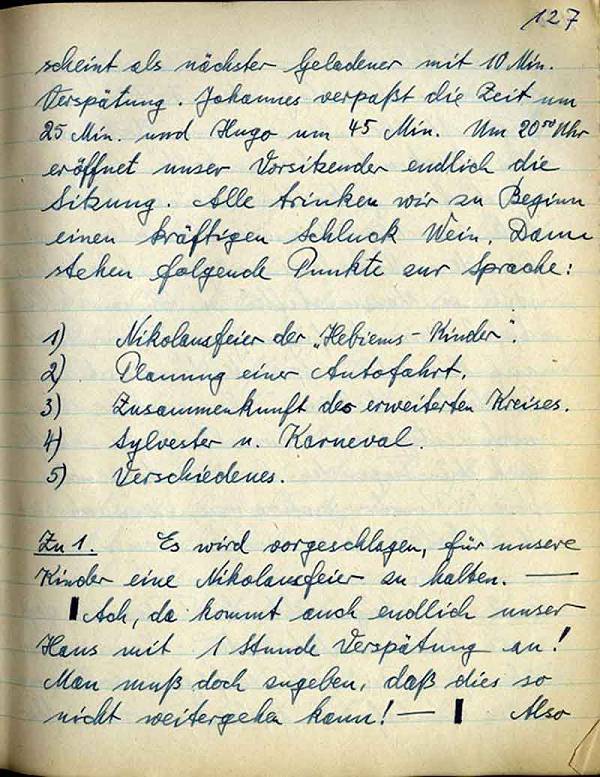 127
scheint als nächster Geladener mit 10 Min.
Verspätung. Johannes verpaßt die Zeit um
25 Min. und Hugo um 45 Min. Um 20⁵⁰ Uhr
eröffnet unser Vorsitzender endlich die
Sitzung. Alle trinken wir zu Beginn
einen kräftigen Schluck Wein. Dann
stehen folgende Punkte zur Sprache:
1) Nikolausfeier der „Hebiems-Kinder".
2) Planung einer Autofahrt.
3) Zusammenkunft des erweiterten Kreises.
4) Sylvester u. Karneval.
5) Verschiedenes.
Zu 1. Es wird vorgeschlagen, für unsere
Kinder eine Nikolausfeier zu halten. —
Ach, da kommt auch endlich unser
Hans mit 1 Stunde Verspätung an!
Man muß doch zugeben, daß dies so
nicht weitergehen kann! — Also